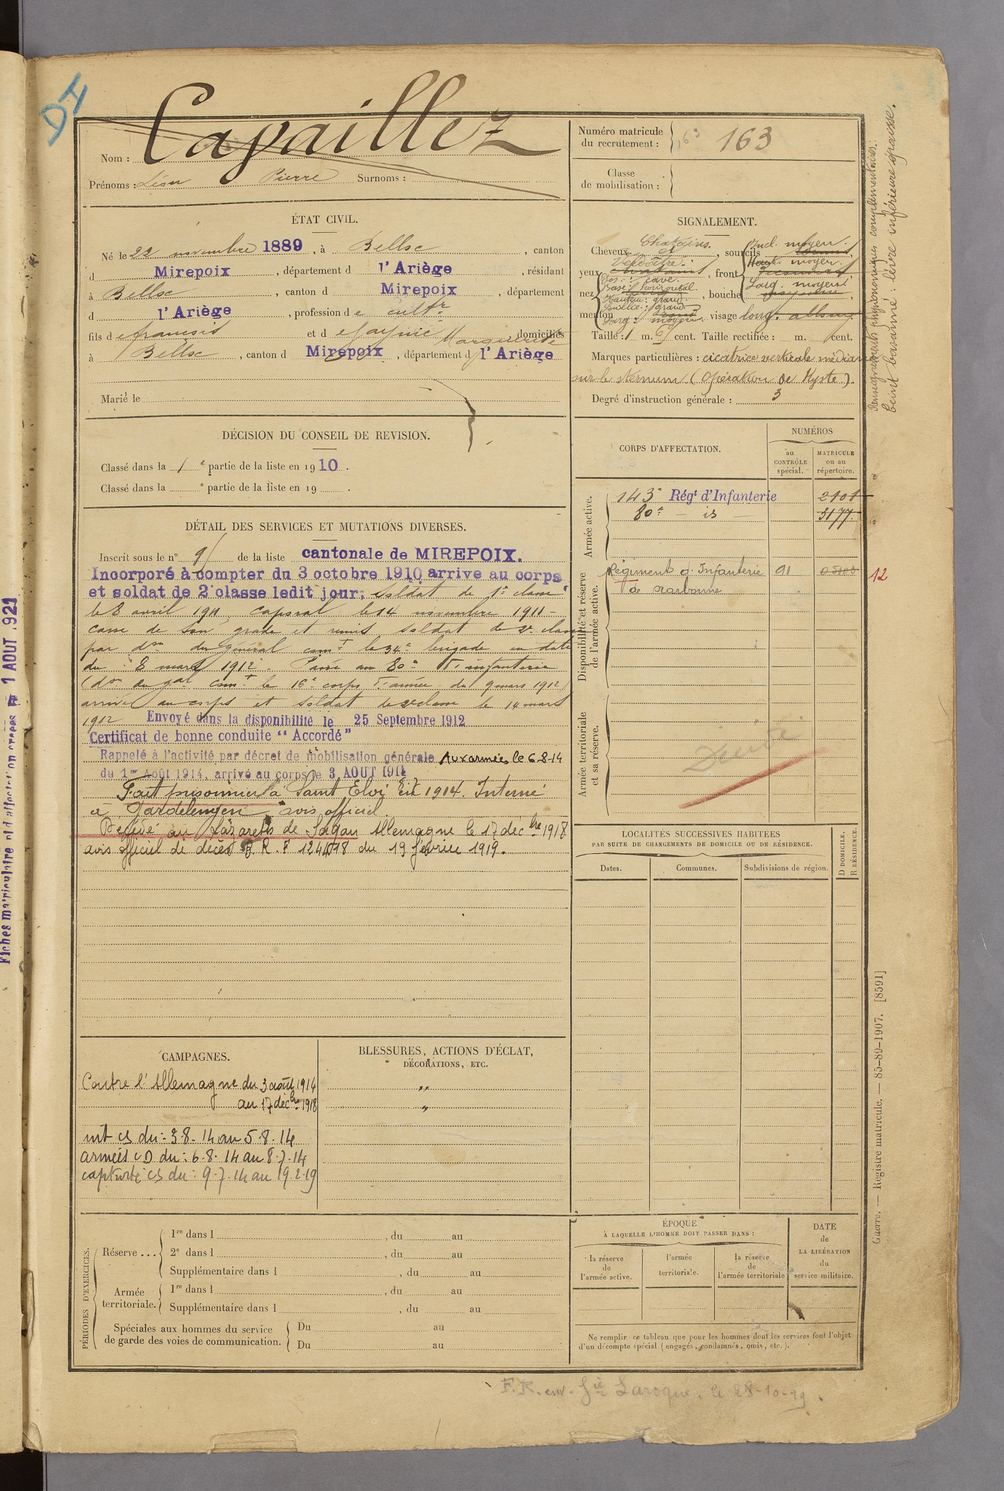 DH
Nom : Capaillez
Prénoms : Léon Pierre Surnoms :
Numéro matricule du recrutement : 163
Classe de mobilisation :
ÉTAT CIVIL.
Né le 22 novembre 1889, à Belloc, canton
d Mirepoix, département d l'Ariège, résidant
à Belloc, canton d Mirepoix, département
d l'Ariège, profession de cultr
fils de François et de Marguerite domiciliés
à Belloc, canton d Mirepoix, département d l'Ariège
Marié le
DÉCISION DU CONSEIL DE REVISION.
Classé dans la 1e partie de la liste en 1910.
Classé dans la e partie de la liste en 19 .
DÉTAIL DES SERVICES ET MUTATIONS DIVERSES.
Inscrit sous le n° 9 de la liste cantonale de MIREPOIX.
Incorporé à compter du 3 octobre 1910 arrive au corps
et soldat de 2e classe ledit jour, soldat de 1e classe
le 8 avril 1911, caporal le 14 novembre 1911.
casse de son grade et remis soldat de 2e classe
par don du Général comt la 34e brigade en date
du 8 mars 1912. Passé au 80e rt infanterie
(don du gal comt le 16e corps d'armée du 9 mars 1912)
arrivé au corps et soldat de 2e classe le 14 mars
1912 Envoyé dans la disponibilité le 25 Septembre 1912
Certificat de bonne conduite "Accordé"
Rappelé à l'activité par décret de mobilisation générale Aux armées le 6-8-14
du 1er Août 1914, arrivé au corps le 3 AOUT 1914
Fait prisonnier à Saint Eloi 1914. Interné
à Gardelengen avis officiel
Décédé au Lazareth de Sagan Allemagne le 17 décbre 1918
avis officiel de décès du 19 février 1919.
SIGNALEMENT.
Cheveux Chatains, sourcils
yeux, front Incl. moyen. Haut. moyen. Larg. moyen
nez Dos: cave. Base: horizontal. Hauteur: grand. Saillie: grand. Larg: moyen, bouche
menton, visage long.
Taille : 1 m. cent. Taille rectifiée : m. cent.
Marques particulières : cicatrice verticale médiane
sur le sternum (Opération de Kyste).
Degré d'instruction générale : 3
Renseignements physionomiques complémentaires :
teint basané. lèvre inférieure épaisse.
CORPS D'AFFECTATION.
NUMÉROS
au CONTRÔLE spécial.
MATRICULE ou au répertoire.
Armée active.
143e Régt d'Infanterie 2101
80e — is 3177
Disponibilité et réserve de l'armée active.
Régiment d'Infanterie 91
de Narbonne
12
Armée territoriale et sa réserve.
LOCALITÉS SUCCESSIVES HABITÉES
PAR SUITE DE CHANGEMENTS DE DOMICILE OU DE RÉSIDENCE.
Dates. Communes. Subdivisions de région. D DOMICILE. R RÉSIDENCE.
CAMPAGNES.
Contre l'Allemagne du 3 août 1914
au 17 décbre 1918
int CS du : 3-8-14 au 5-8-14
armées CD du : 6-8-14 au 8-7-14
captivité CS du : 9-7-14 au 19-2-19
BLESSURES, ACTIONS D'ÉCLAT,
DÉCORATIONS, ETC.
"
"
PÉRIODES D'EXERCICES.
Réserve ... 1re dans l , du au
2e dans l , du au
Supplémentaire dans l , du au
Armée territoriale. 1re dans l , du au
Supplémentaire dans l , du au
Spéciales aux hommes du service de garde des voies de communication. Du au
Du au
ÉPOQUE
À LAQUELLE L'HOMME DOIT PASSER DANS :
la réserve de l'armée active.
l'armée territoriale.
la réserve de l'armée territoriale
DATE DE LA LIBÉRATION du service militaire.
Ne remplir ce tableau que pour les hommes dont les services font l'objet
d'un décompte spécial (engagés, condamnés, omis, etc.).
Guerre. — Registre matricule. — 85-89-1907. [8591]
F.R. env. Gie Laroque, le 28-10-19.
1 AOUT 1921